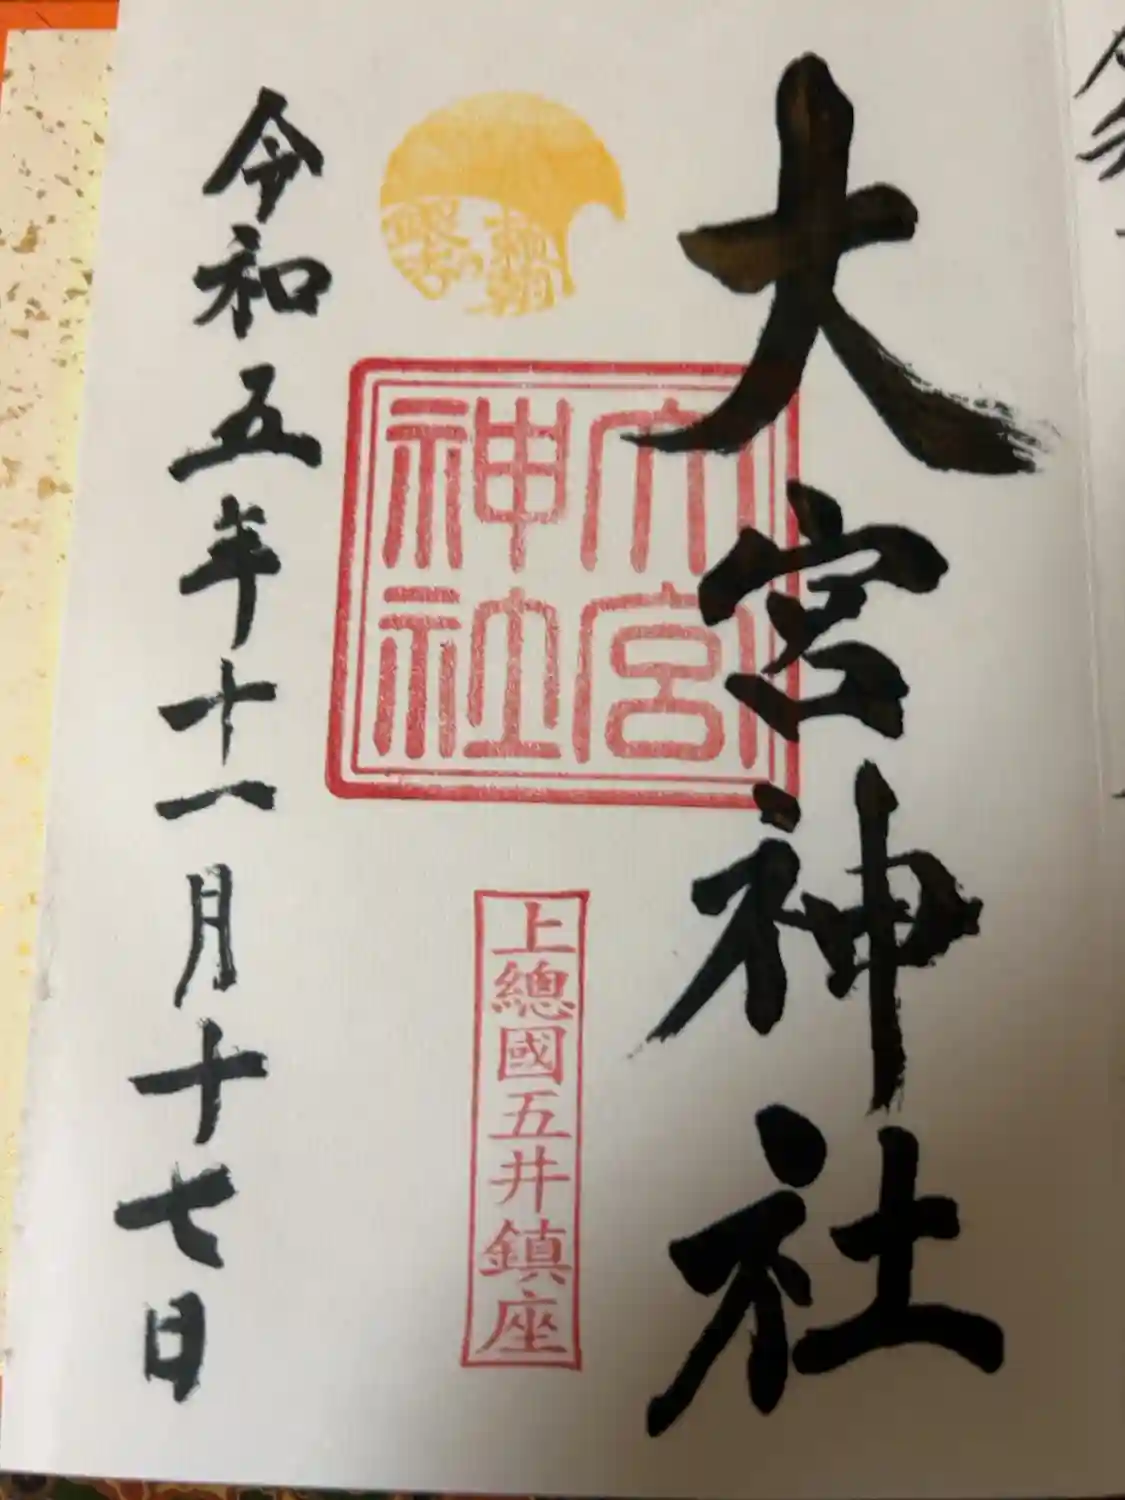 大宮神社
大宮神社
上總國五井鎮座
令和五年十一月十七日